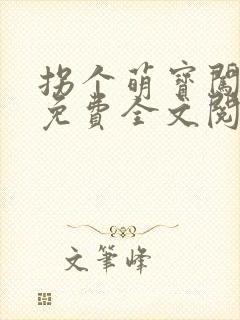 拐个萌寶闖
免費全文閱
文筆峰